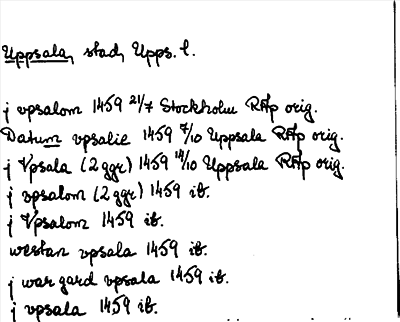 Uppsala, stad, Upps. l.
j vpsalom 1459 21/7 Stockholm RAp orig.
Datum vpsalie 1459 7/10 Uppsala RAp orig.
j Vpsala (2 ggr) 1459 14/10 Uppsala RAp orig.
j vpsalom (2 ggr) 1459 ib.
j Vpsalom 1459 ib.
westan vpsala 1459 ib.
j war gard vpsala 1459 ib.
j vpsala 1459 ib.